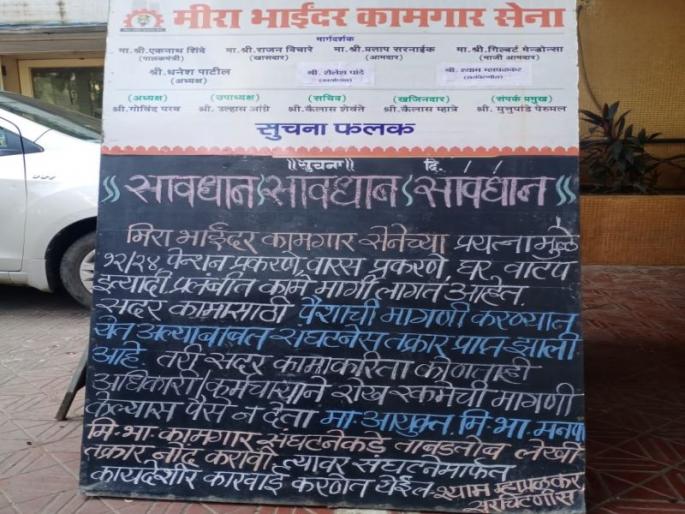 मीरा भाईंदर कामगार सेना
मार्गदर्शक
मा.श्री.एकनाथ शिंदे मा.श्री.राजन विचारे मा.श्री.प्रताप सरनाईक मा.श्री.गिल्बर्ट मेन्डोन्सा
(पालकमंत्री) (खासदार) (आमदार) (माजी आमदार)
श्री.धनेश पाटील श्री. शैलेश पांडे श्री.श्याम म्हाप्रळकर
(अध्यक्ष) (सरचिटणीस)
(अध्यक्ष) (उपाध्यक्ष) (सचिव) (खजिनदार) (संपर्क प्रमुख)
श्री.गोविंद परब श्री. उल्हास आंग्रे श्री.कैलास शेवंते श्री.कैलास म्हात्रे श्री. मुत्तुपांडे पेरुमल
सुचना फलक
॥सुचना॥ दि. / /
सावधान सावधान सावधान
मिरा भाईंदर कामगार सेनेच्या प्रयत्नामुळे
१२/२४ पेन्शन प्रकरणे, वारस प्रकरणे, घर वाटप
इत्यादी प्रलंबीत कामे मार्गी लागत आहेत.
सदर कामासाठी पैशाची मागणी करण्यात
येत असल्याबाबत संघटनेस तक्रार प्राप्त झाली
आहे तरी सदर कामाकरिता कोणताही
अधिकारी/कर्मचाऱ्याने रोख रक्कमेची मागणी
केल्यास पैसे न देता मा.आयुक्त, मि.भा.मनपा
मि.भा.कामगार संघटनेकडे ताबडतोब लेखी
तक्रार नोंद करावी त्यावर संघटनेमार्फत
कायदेशीर कारवाई करणेत येईल. श्याम म्हाप्रळकर
सरचिटणीस